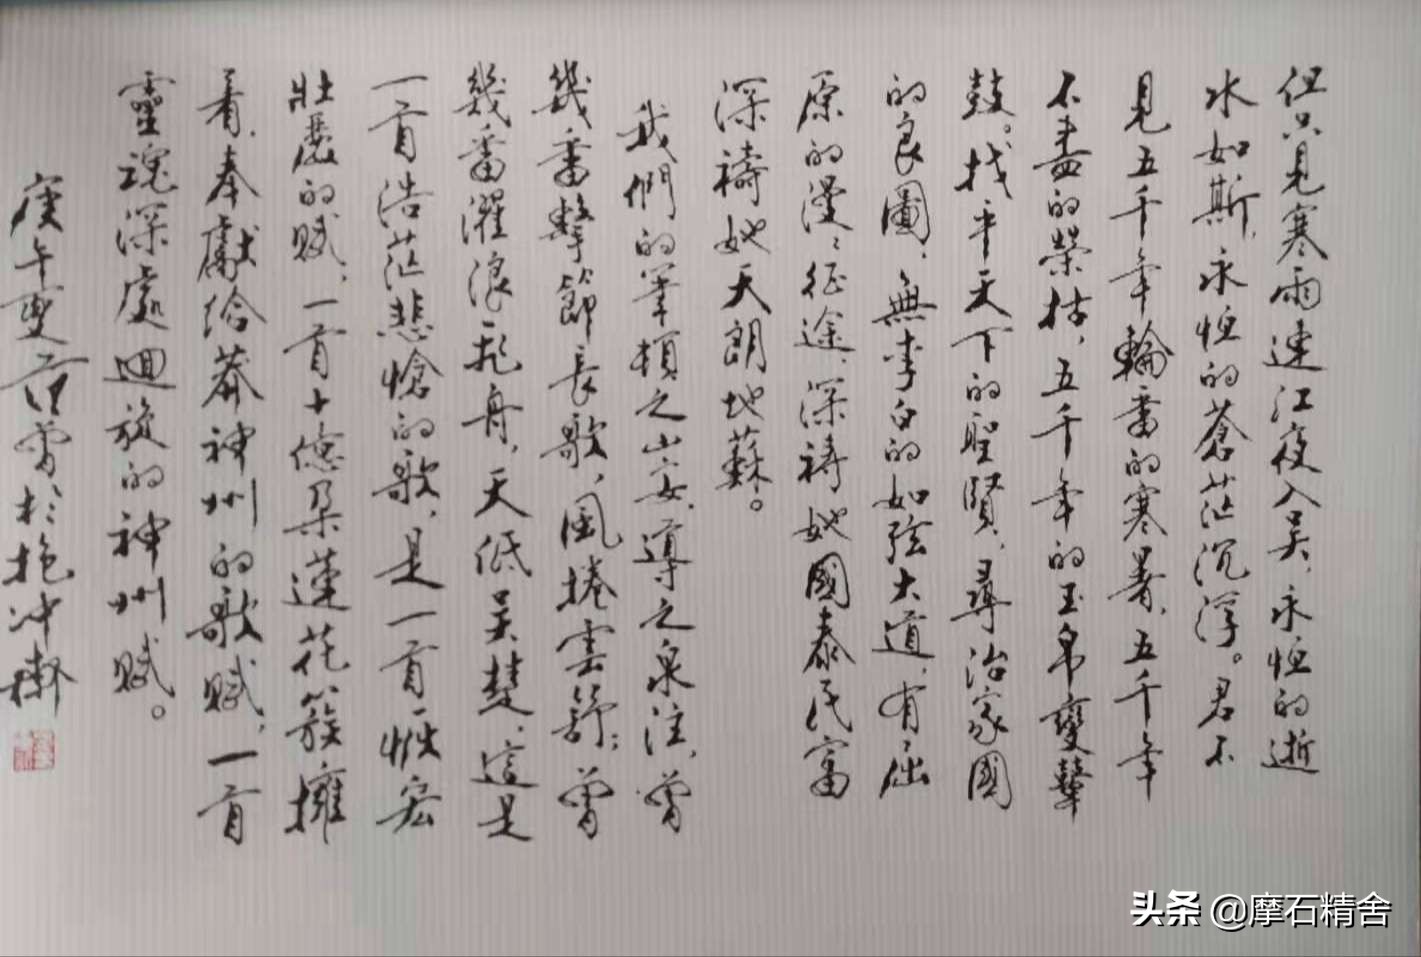 但只見寒雨連江夜入吴，永恒的逝
水如斯，永恒的蒼茫沉浮。君不
見五千年輪番的寒暑，五千年
不盡的榮枯，五千年的玉帛鼙
鼓。找乎天下的聖賢，尋治家國
的良圖，無李白的如弦大道，有屈
原的漫漫征途，深禱她國泰民富
深禱她天朗地蘇。
我們的筆頓之山安，導之泉注，曾
幾番擊節長歌，風捲雲舒；曾
幾番濯浪乱舟，天低吴楚，這是
一首浩茫悲愴的歌，是一首恢宏
壯麗的賦，一首十億朵蓮花簇擁
着，奉獻給莽神州的歌賦，一首
靈魂深處迴旋的神州賦。
庚午夏 范曾於抱冲齋
头条 @摩石精舍